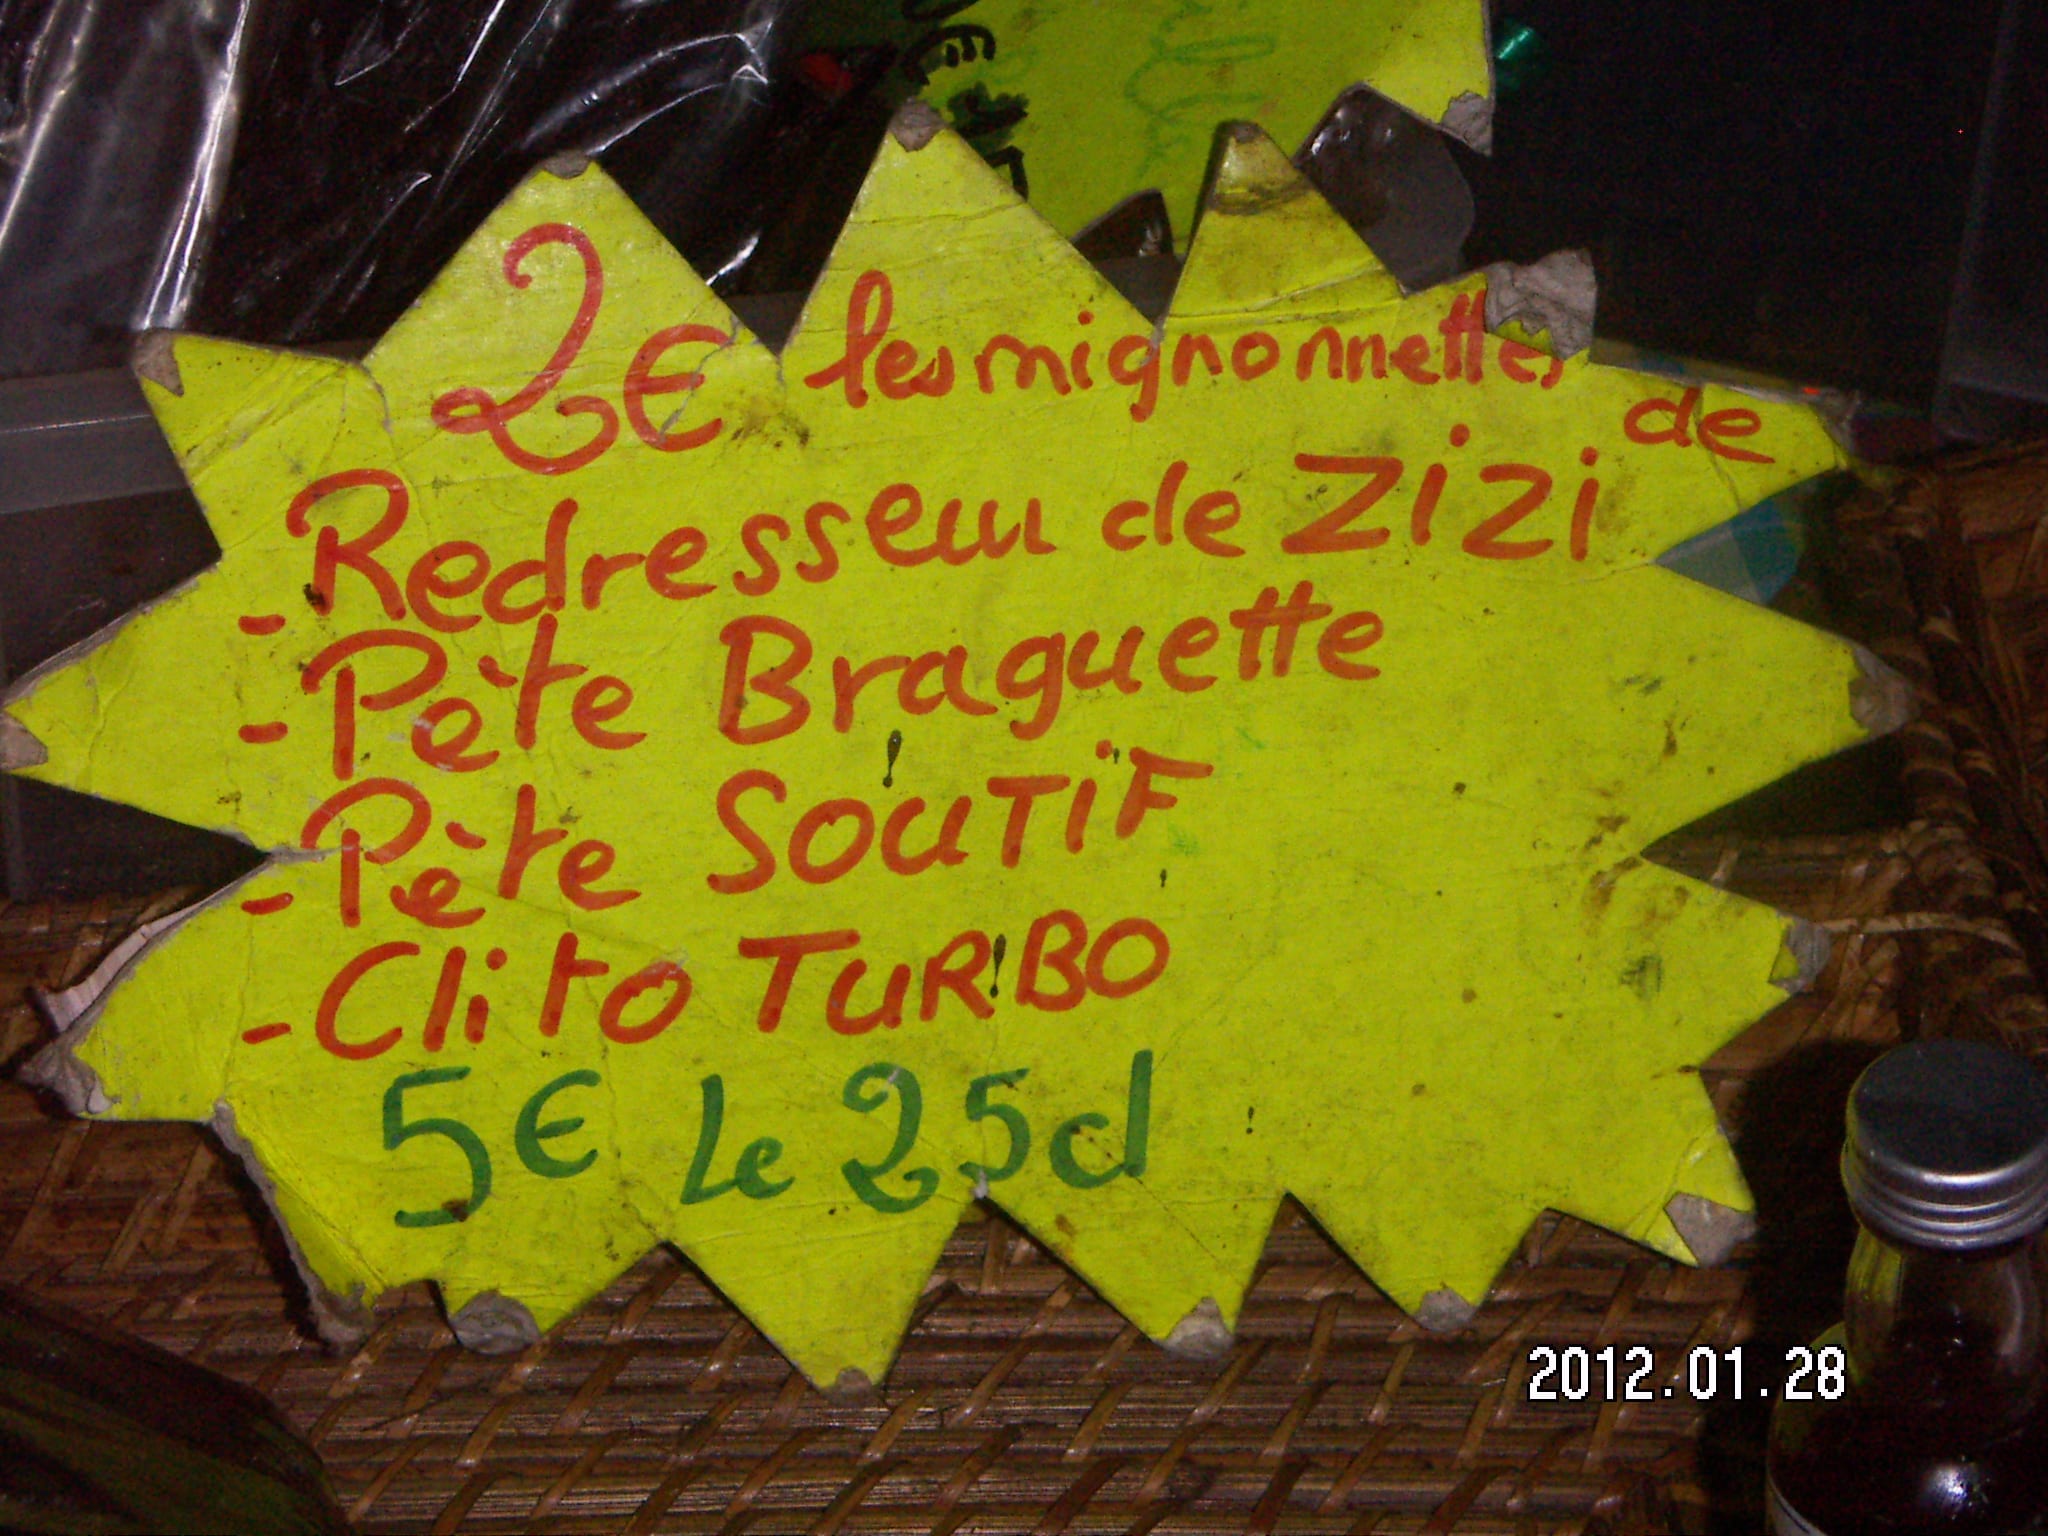 2€ les mignonnettes de
- Redresseur de ZiZi
- Pète Braguette
- Pète SOUTiF
- Clito TURBO
5€ Le 25cl
2012.01.28